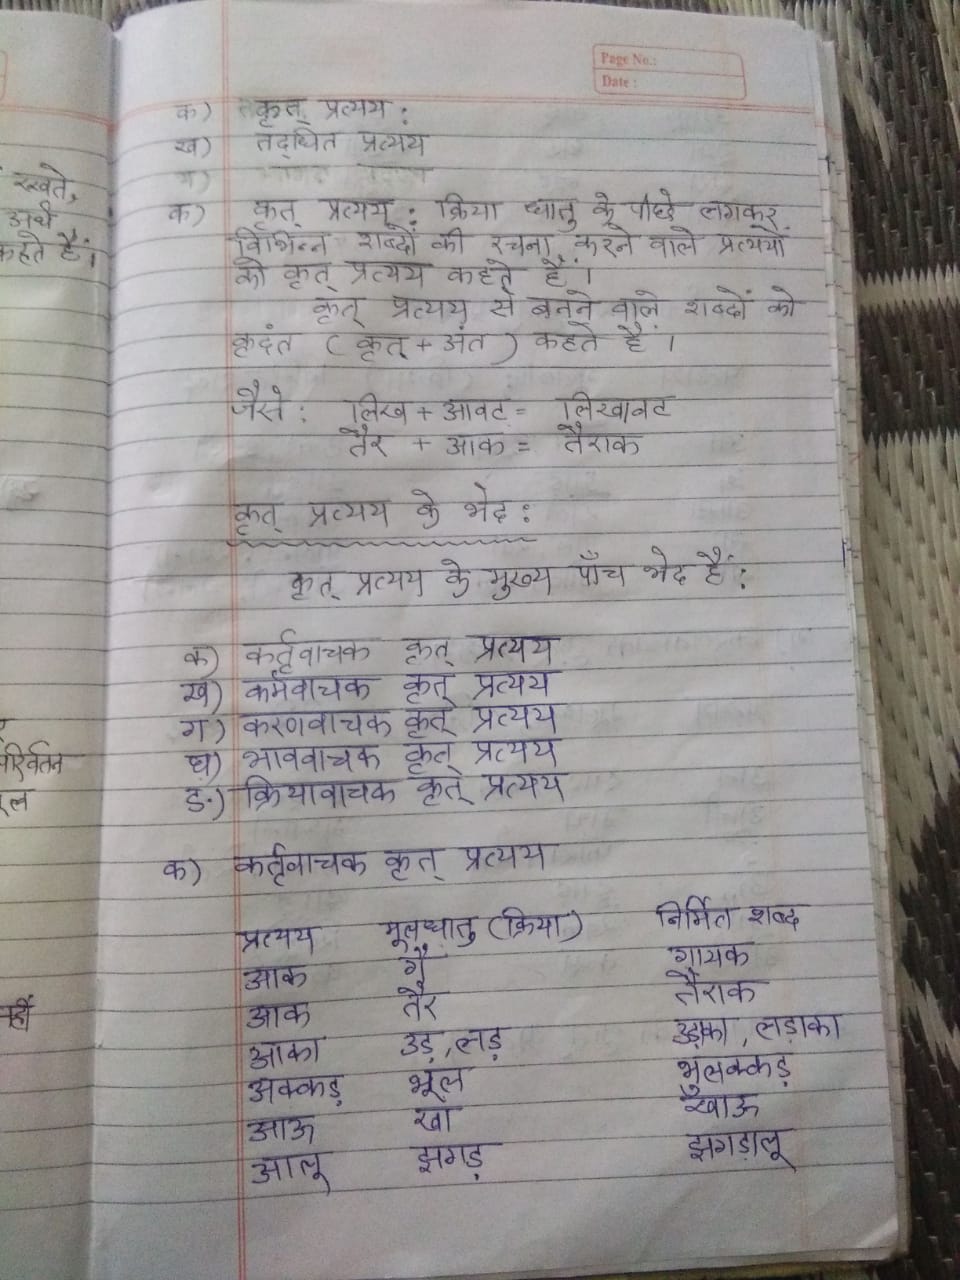 Page No.:
Date :
क) कृत् प्रत्यय :
ख) तद्धित प्रत्यय
ग)
रखते,
अर्थ
कहते हैं।
क) कृत् प्रत्यय : क्रिया धातु के पीछे लगकर
विभिन्न शब्दों की रचना करने वाले प्रत्ययों
को कृत् प्रत्यय कहते हैं ।
कृत् प्रत्यय से बनने वाले शब्दों को
कृदंत ( कृत् + अंत ) कहते हैं ।
जैसे : लिख + आवट = लिखावट
तैर + आक = तैराक
कृत् प्रत्यय के भेद :
कृत् प्रत्यय के मुख्य पाँच भेद हैं :
क) कर्तृवाचक कृत् प्रत्यय
ख) कर्मवाचक कृत् प्रत्यय
ग) करणवाचक कृत् प्रत्यय
घ) भाववाचक कृत् प्रत्यय
ङ) क्रियावाचक कृत् प्रत्यय
परिर्वतन
क) कर्तृवाचक कृत् प्रत्यय
प्रत्यय मूलधातु (क्रिया) निर्मित शब्द
आक गै गायक
आक तैर तैराक
आका उड़ ,लड़ उड़ाका , लड़ाका
अक्कड़ भूल भुलक्कड़
आऊ खा खाऊ
आलू झगड़ झगड़ालू